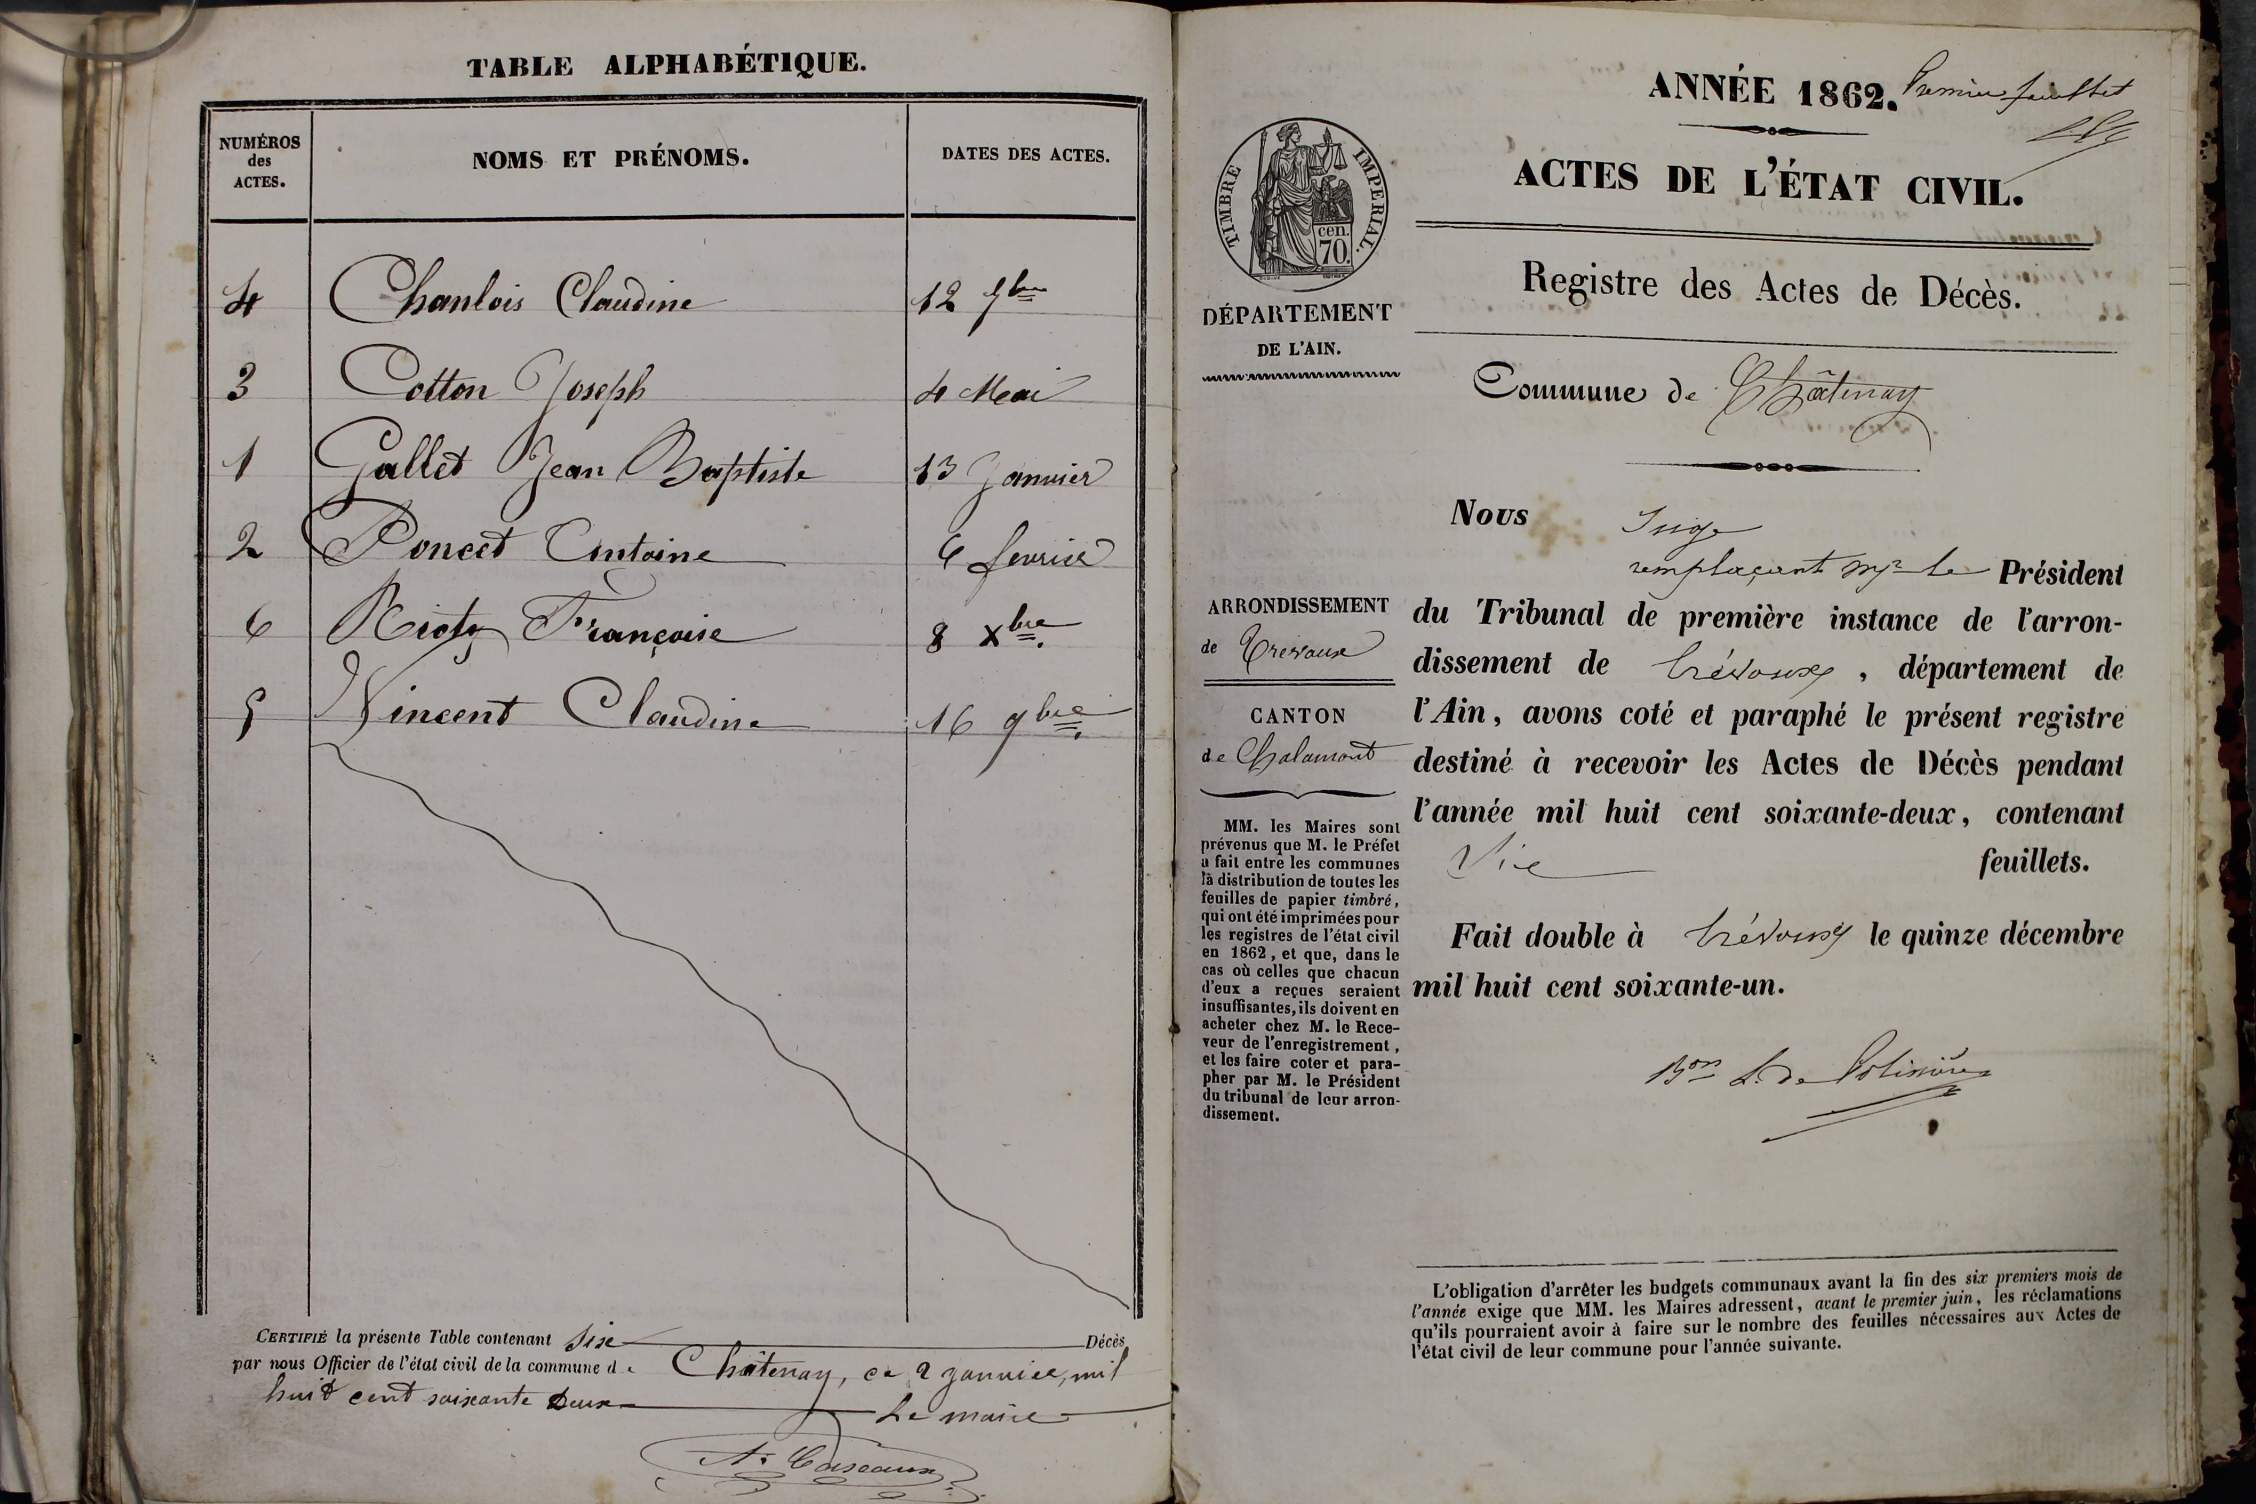 TABLE ALPHABÉTIQUE.
NUMÉROS des ACTES. NOMS ET PRÉNOMS. DATES DES ACTES.
4 Chanlois Claudine 12 7bre
3 Cotton Joseph 4 Mai
1 Gallet Jean Baptiste 13 Janvier
2 Poncet Antoine 6 fevrier
6 Françoise 8 Xbre.
5 Vincent Claudine 16 9bre.
CERTIFIÉ la présente Table contenant Six Décès
par nous Officier de l'état civil de la commune de Châtenay, ce 2 janvier, mil
huit cent soixante deux Le maire
ANNÉE 1862. Premier feuillet
ACTES DE L'ÉTAT CIVIL.
TIMBRE IMPERIAL.
cen.
70.
Registre des Actes de Décès.
DÉPARTEMENT
DE L'AIN.
Commune de Châtenay
ARRONDISSEMENT
de Trevoux
CANTON
de Chalamont
MM. les Maires sont
prévenus que M. le Préfet
a fait entre les communes
la distribution de toutes les
feuilles de papier timbré,
qui ont été imprimées pour
les registres de l'état civil
en 1862, et que, dans le
cas où celles que chacun
d'eux a reçues seraient
insuffisantes, ils doivent en
acheter chez M. le Rece-
veur de l'enregistrement,
et les faire coter et para-
pher par M. le Président
du tribunal de leur arron-
dissement.
Nous Juge
remplaçant Mr le Président
du Tribunal de première instance de l'arron-
dissement de Trévoux, département de
l'Ain, avons coté et paraphé le présent registre
destiné à recevoir les Actes de Décès pendant
l'année mil huit cent soixante-deux, contenant
feuillets.
Fait double à Trévoux le quinze décembre
mil huit cent soixante-un.
Bon L. de Polinière
L'obligation d'arrêter les budgets communaux avant la fin des six premiers mois de
l'année exige que MM. les Maires adressent, avant le premier juin, les réclamations
qu'ils pourraient avoir à faire sur le nombre des feuilles nécessaires aux Actes de
l'état civil de leur commune pour l'année suivante.